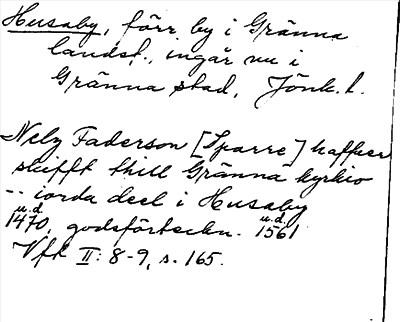 Husaby, förr by i Gränna
landsf., ingår nu i
Gränna stad, Jönk. l.
Nelz Faderson [Sparre] haffuer
skifft thill Gränna kyrkio
-- iorda deel i Husaby
u.d. 1470, godsförteckn. u.d. 1561
Vfk II: 8-9, s. 165.